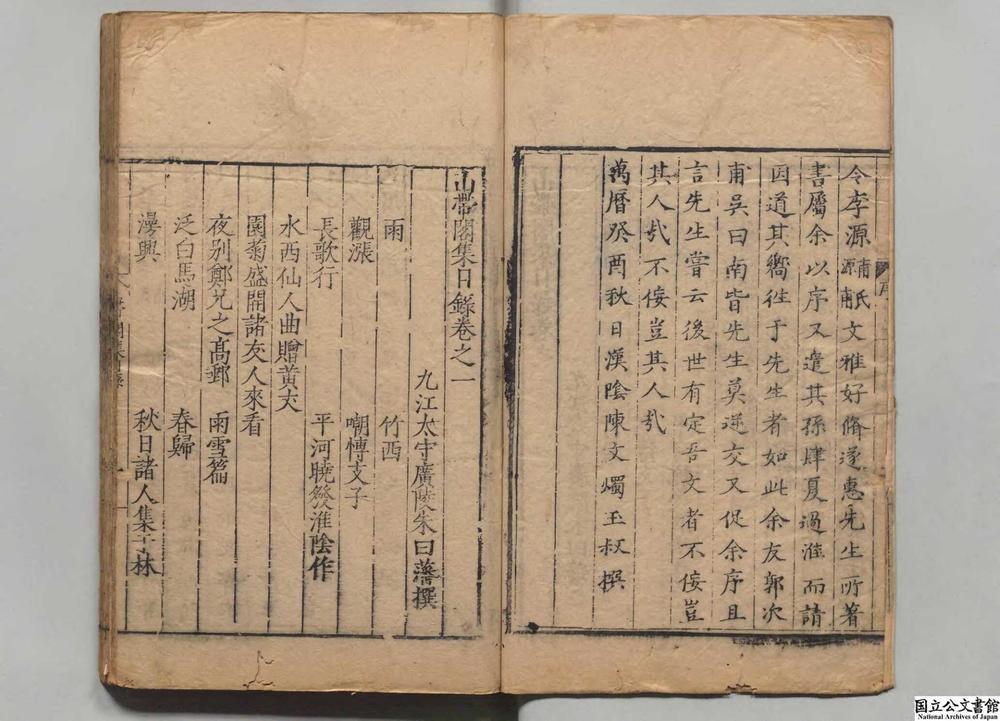 令李源甫源甫氏文雅好脩遂惠先生所著
書屬余以序又遣其孫肆夏過淮而請
因道其嚮徃于先生者如此余友郭次
甫吳曰南皆先生莫逆交又促余序且
言先生嘗云後世有定吾文者不佞豈
其人㢤不佞豈其人㢤
萬曆癸酉秋日漢陰陳文燭玉叔撰
山帶閣集目錄卷之一
九江太守廣陵朱曰藩撰
雨 竹西
觀漲 嘲愽文子
長歌行 平河曉發淮陰作
水西仙人曲贈黃夫
園菊盛開諸友人來看
夜别鄭兄之高郵 雨雪篇
泛白馬湖 春歸
漫興 秋日諸人集于林
国立公文書館
National Archives of Japan